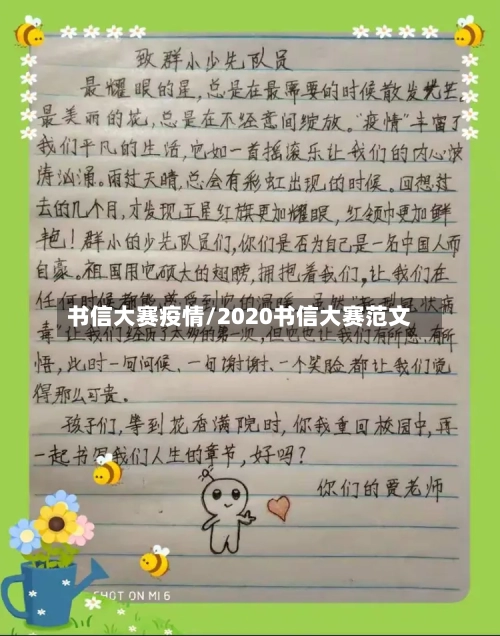 致群小少先队员
最耀眼的星,总是在最需要的时候散发光芒。
最美丽的花,总是在不经意间绽放。“疫情”丰富了
我们平凡的生活,它如一首摇滚乐让我们的内心波
涛汹涌。雨过天晴,总会有彩虹出现的时候。回想过
去的几个月,才发现五星红旗更加耀眼,红领巾更加鲜
艳!群小的少先队员们,你们是否为自己是一名中国人而
自豪。祖国用它硕大的翅膀,拥抱着我们,让我们在
任何时候都能感受到它的温暖。虽然“新型冠状病
书信大赛疫情/2020书信大赛范文
毒”让我们经历了太多的第一次,但它也让我们有所思.有所
悟,此时一句问候、一句谢谢、一个笑脸都让我们觉
得那么可贵。
孩子们,等到花香满院时,你我重回校园中,再
一起书写我们人生的章节,好吗?
你们的贾老师
SHOT ON MI 6